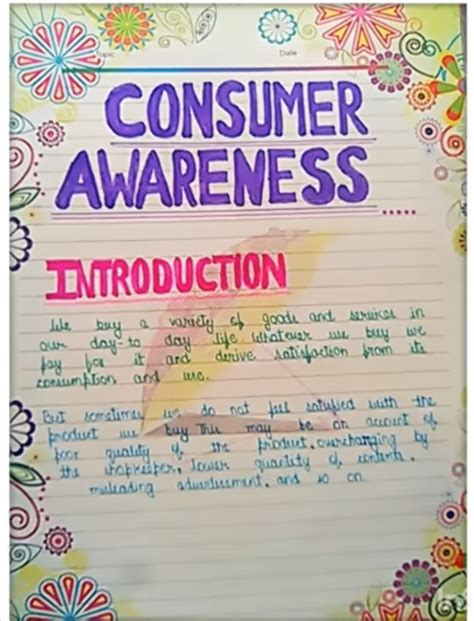 Date
CONSUMER
AWARENESS
INTRODUCTION
We buy a variety of goods and services in
our day-to day life. Whatever we buy we
pay for it and derive satisfaction from its
consumption and use.
But sometimes we do not feel satisfied with the
product we buy. This may be on account of
poor quality of the product, overcharging by
the shopkeeper, lower quantity of contents,
misleading advertisement, and so on.